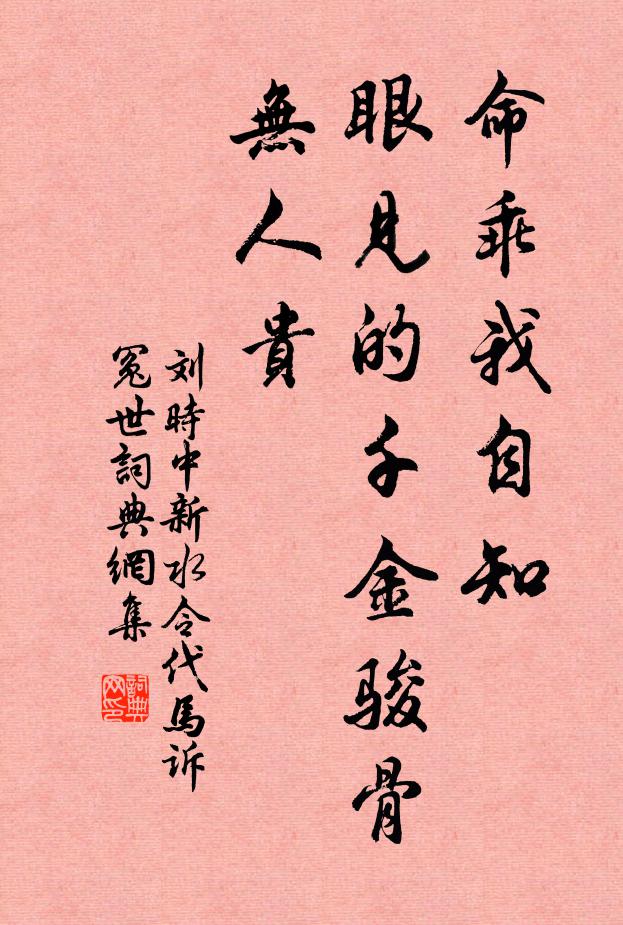 命乖我自知
眼見的千金骏骨
無人貴
刘時中新水令代馬訴
冤世詞典網集
詞典
网印